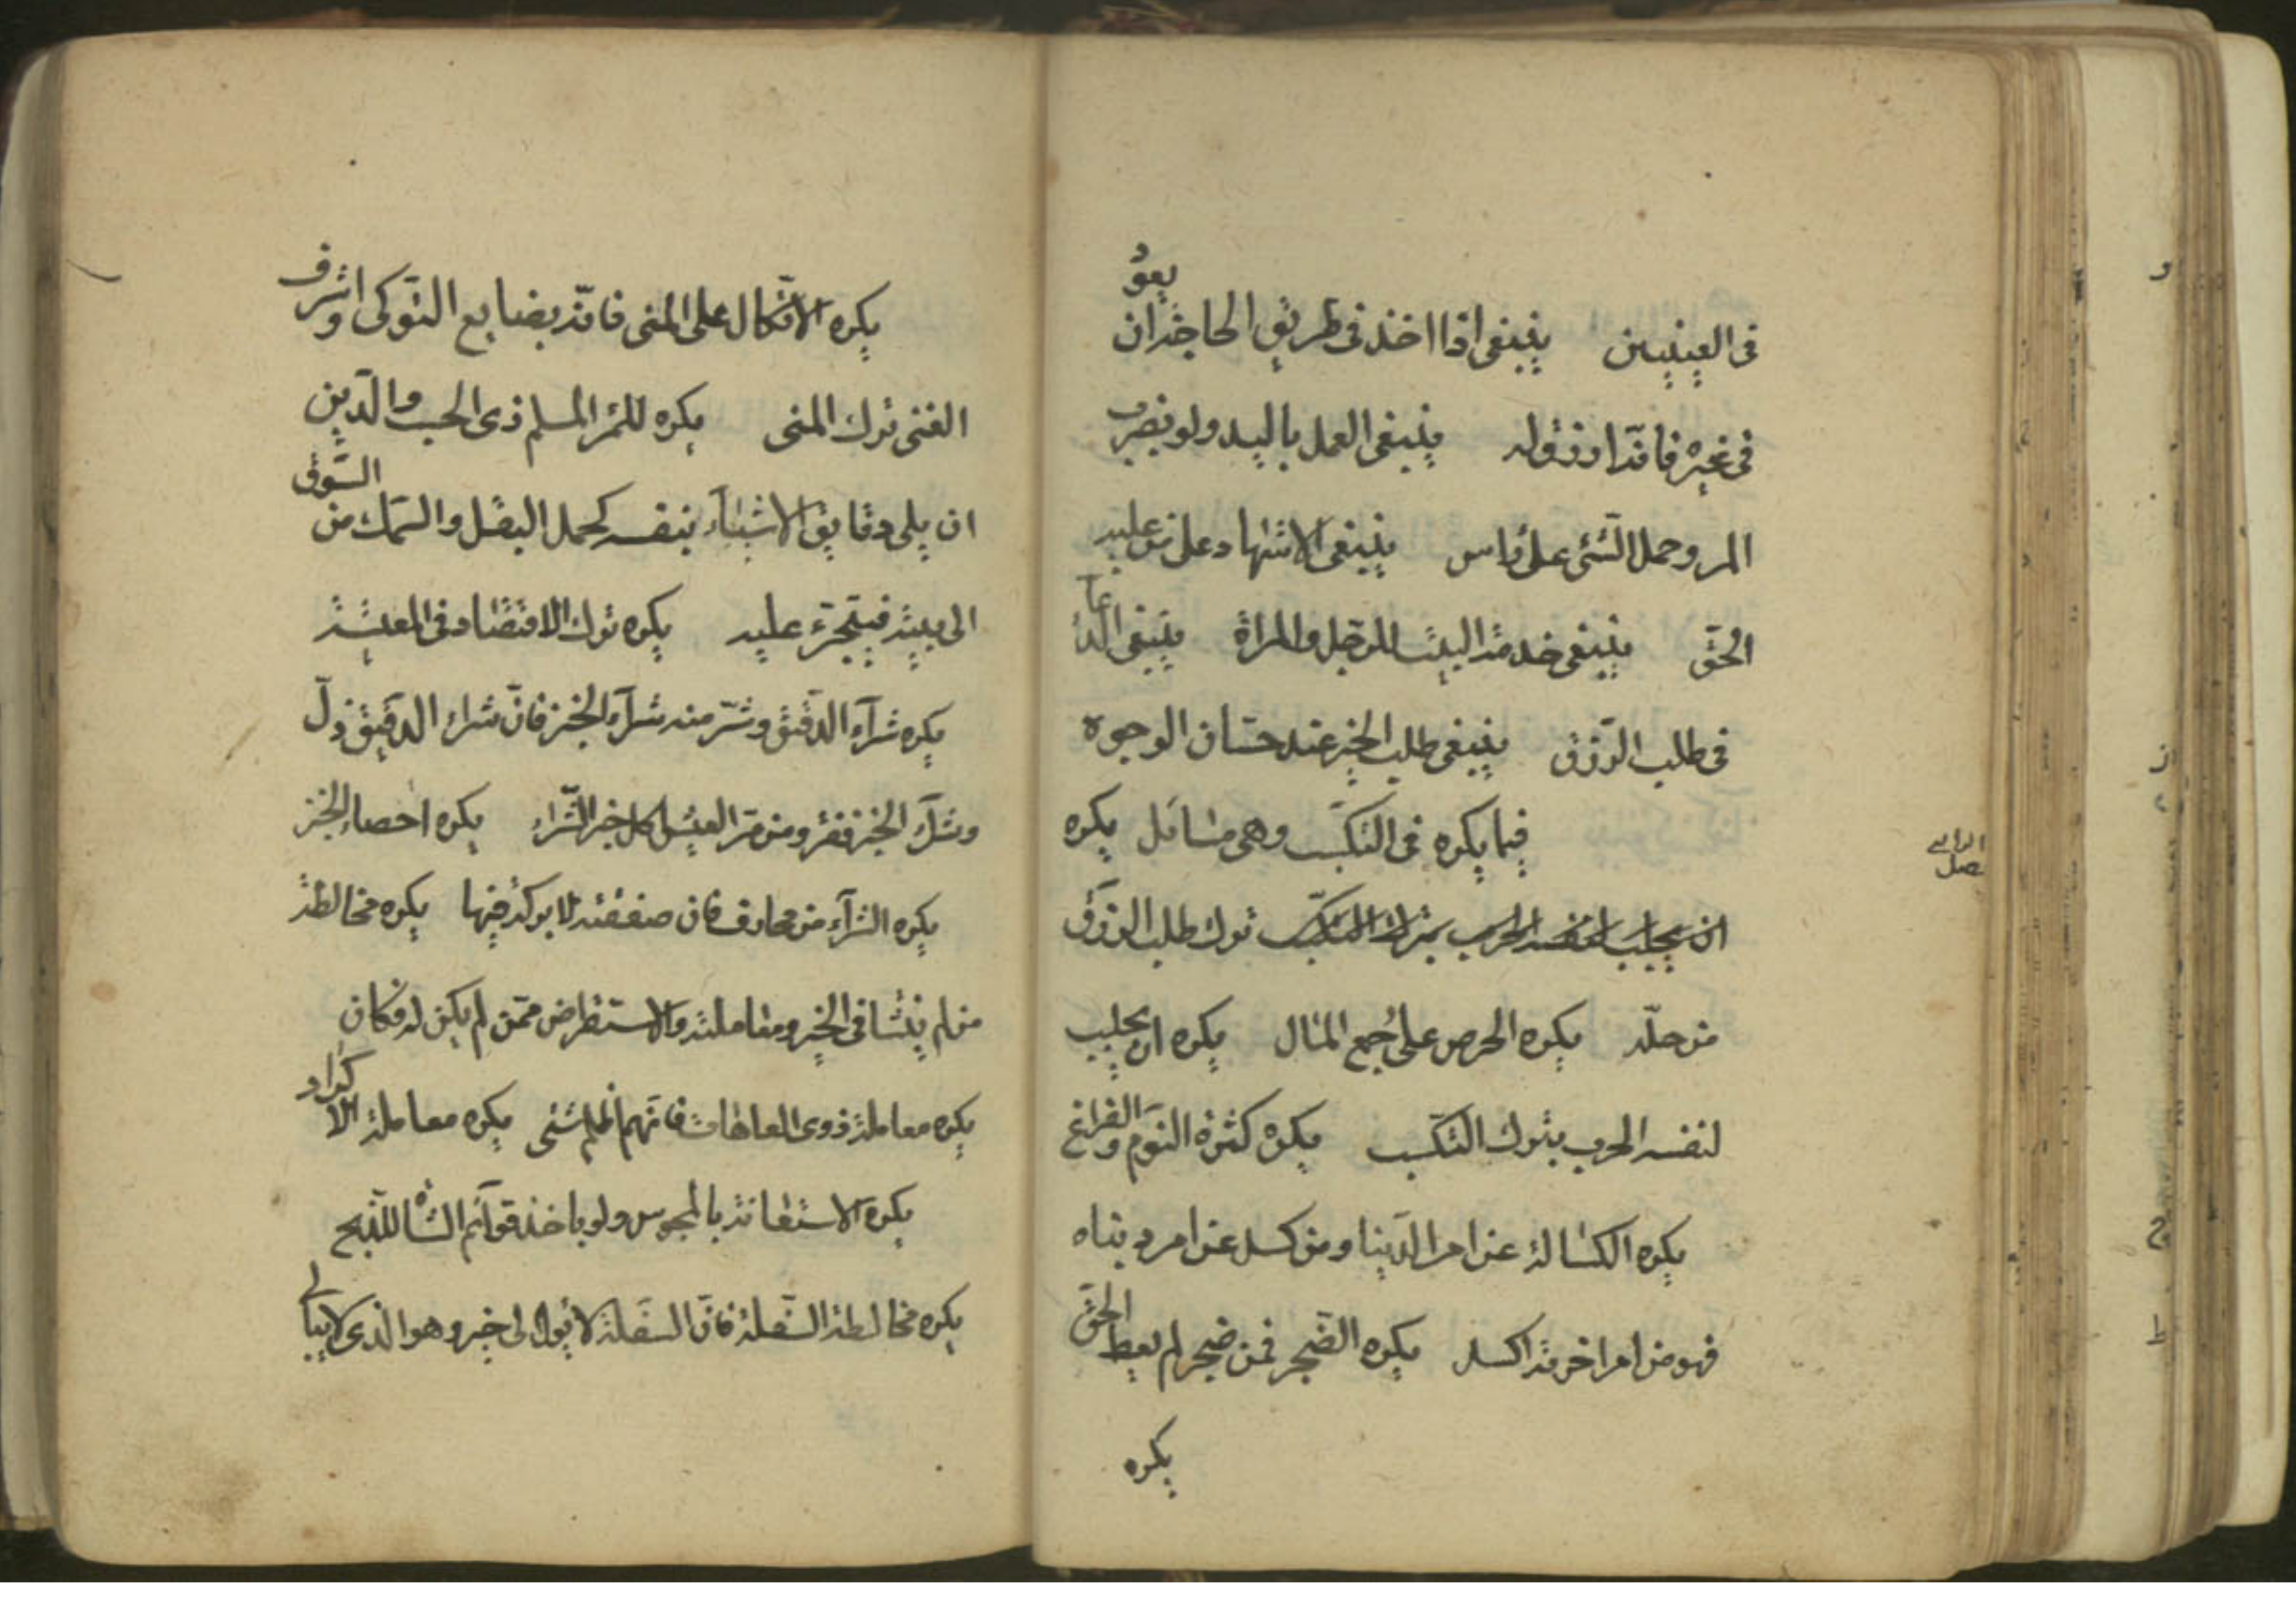 فى العينين ينبغى اذا اخذ فى طريق الحاجة ان يعود
فى غيره فانه ارزق له ينبغى العمل باليد ولو بضرب
المر وحمل الشئ على الراس ينبغى الاشهاد على من عليه
الحق ينبغى خدمة البيت للرجل والمراة ينبغى الدعا
فى طلب الرزق ينبغى طلب الخير عند حسان الوجوه
فيما يكره فى التكسب وهى مسائل يكره
ان يجلب لنفسه الحرب بترك التكسب ترك طلب الرزق
من حلّه يكره الحرص على جمع المال يكره ان يجلب
لنفسه الحرب بترك التكسب يكره كثرة النوم والفراغ
يكره الكسالة عن امر الدنيا ومن كسل عن امر دنياه
فهو من امر اخرته اكسل يكره الضجر فمن ضجر لم يعط الحق
يكره
يكره الاتكال على المنى فانه بضايع النوكى واشرف
الغنى ترك المنى يكره للمرء المسلم ذى الحسب والدين
ان يلى دقايق الاشياء بنفسه كحمل البقل والسمك من السوق
الى بيته فيتجرئ عليه يكره ترك الاقتصاد فى المعيشة
يكره شرآء الدقيق وشرّ منه شرآء الخبز فان شراء الدقيق ذلّ
وشرآء الخبز فقر ومن مر العيش اكل خبز الشراء يكره احصاء الخبز
يكره الشرآء من محارف فان صفقته لا بركة فيها يكره مخالطة
من لم ينشا فى الخير ومعاملته والاستقراض ممن لم يكن له فكان
يكره معاملة ذوى العاهات فانهم اظلم شئى يكره معاملة الاكراد
يكره الاستعانة بالمجوس ولو باخذ قوآئم الشاة للذبح
يكره مخالطة السفلة فان السفلة لا يؤل الى خير وهو الذى لا يبالى